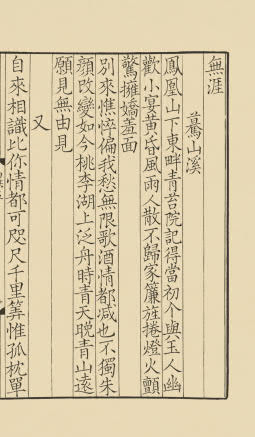 無涯
驀山溪
鳳凰山下東畔青苔院記得當初个與玉人幽
歡小宴黄昏風雨人散不歸家簾旌捲燈火顫
驚擁嬌羞面
别來憔悴偏我愁無限歌酒情都减也不獨朱
顔改變如今桃李湖上泛舟時青天晚青山遠
願見無由見
又
自來相識比你情都可咫尺千里筭惟孤枕單